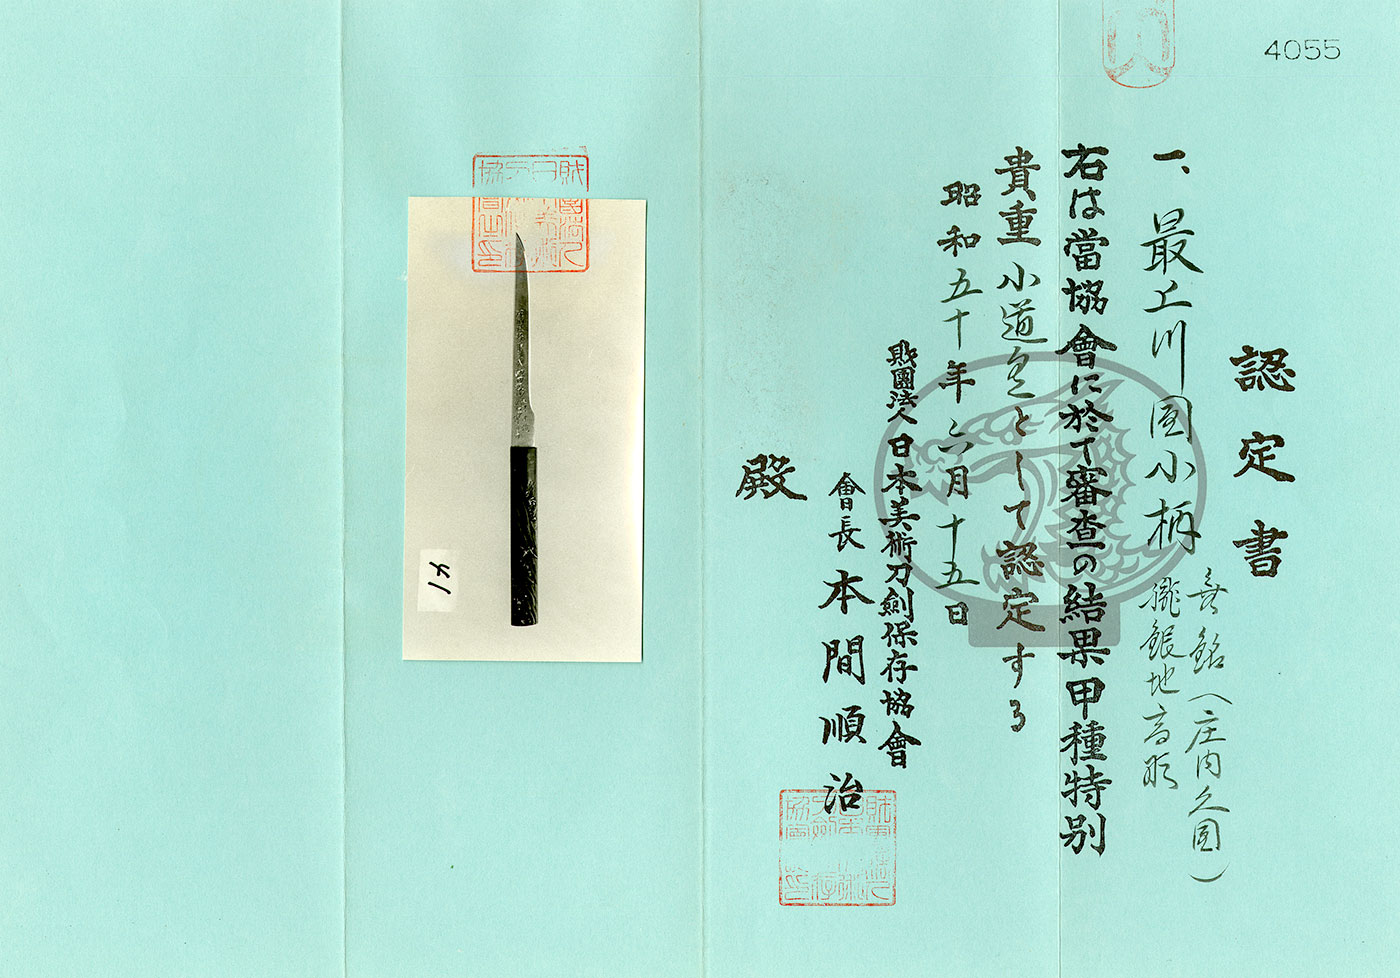 4055
認定書
一、最上川図小柄
無銘(庄内久図)
朧銀地高彫
右は當協會に於て審査の結果甲種特別
貴重小道具として認定する
昭和五十年六月十五日
財團法人日本美術刀劍保存協會
會長本間順治
殿